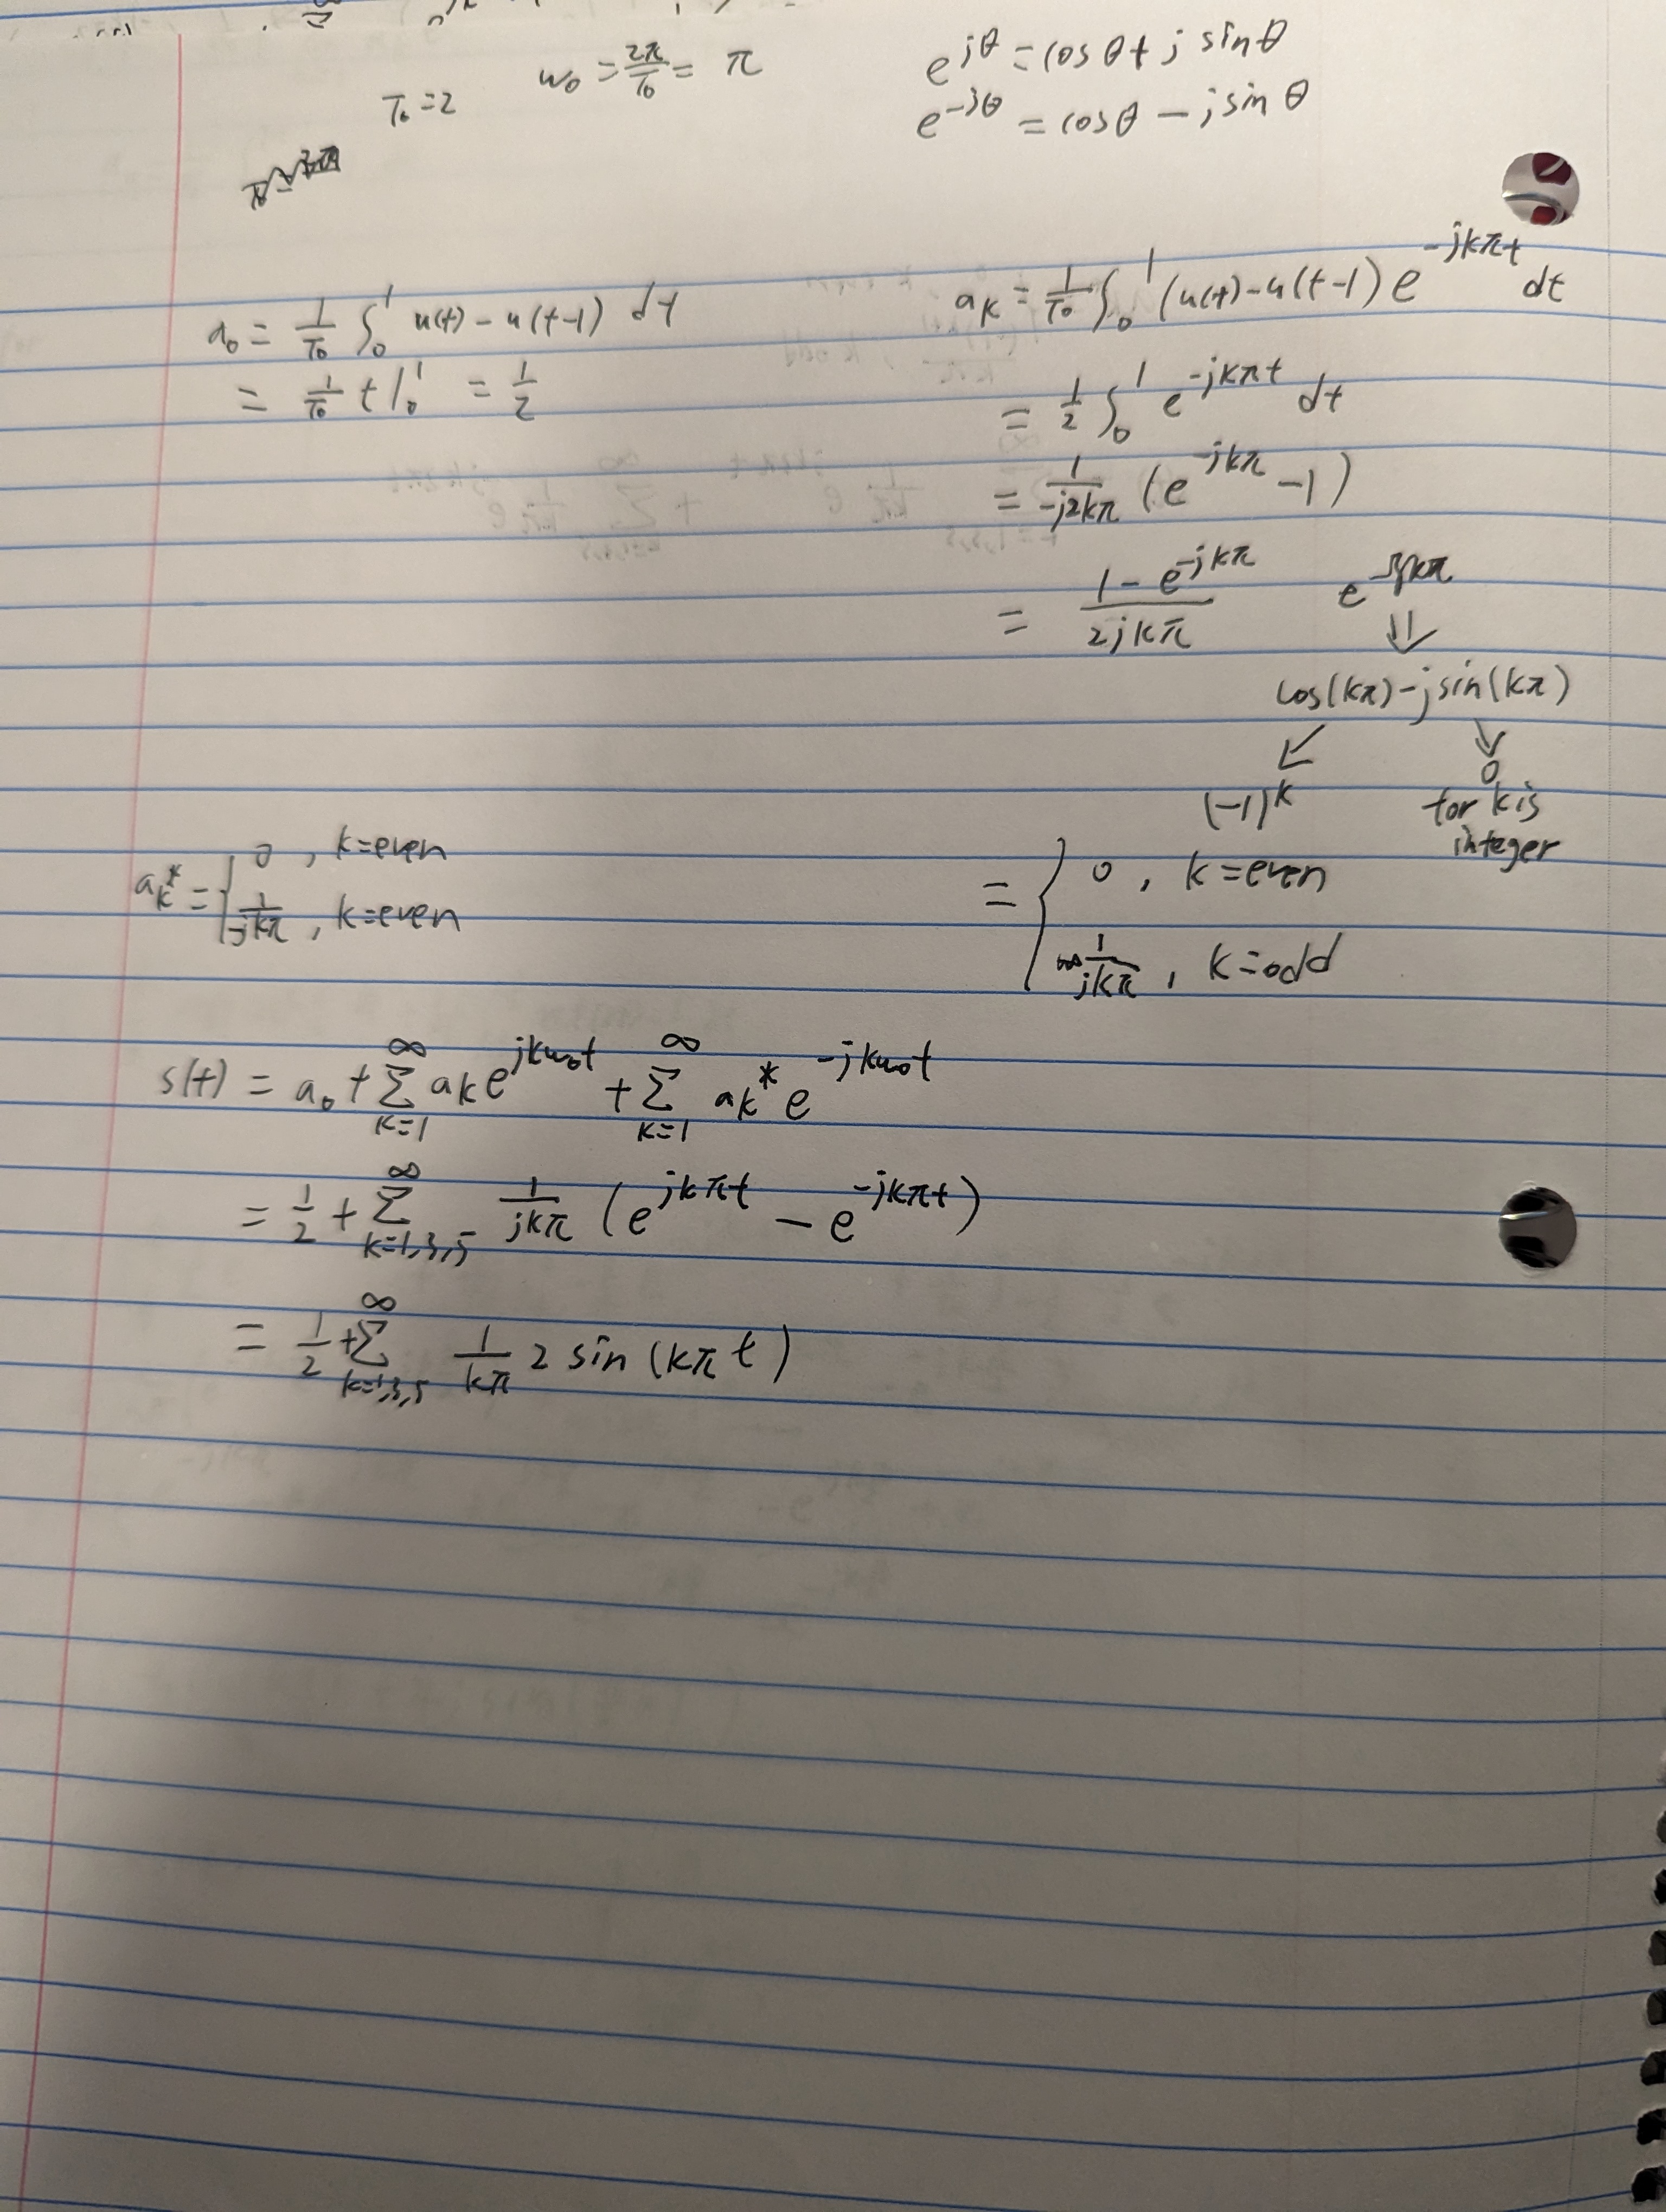 T₀ = 2
w₀ = 2π/T₀ = π
e^{jθ} = cos θ + j sin θ
e^{-jθ} = cos θ - j sin θ
a₀ = 1/T₀ ∫₀¹ u(t) - u(t-1) dt
= 1/T₀ t |₀¹ = 1/2
a_k = 1/T₀ ∫₀¹ (u(t) - u(t-1) e^{-jkπt} dt
= 1/2 ∫₀¹ e^{-jkπt} dt
= 1/(-j2kπ) (e^{-jkπ} - 1)
= (1 - e^{-jkπ})/(2jkπ)
e^{-jkπ}
⇓
cos(kπ) - j sin(kπ)
↙ ↘
(-1)^k
0
for k is
integer
= { 0 , k = even
1/(jkπ) , k = odd
a_k^* = { 0 , k = even
1/(-jkπ) , k = even
s(t) = a₀ + ∑_{k=1}^{∞} a_k e^{jkw₀t} + ∑_{k=1}^{∞} a_k^* e^{-jkw₀t}
= 1/2 + ∑_{k=1,3,5}^{∞} 1/(jkπ) (e^{jkπt} - e^{-jkπt})
= 1/2 + ∑_{k=1,3,5}^{∞} 1/(kπ) 2 sin(kπt)